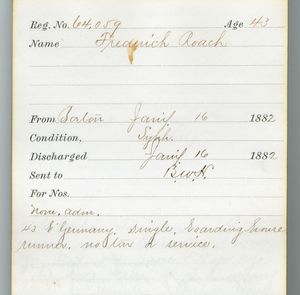 Reg. No. 64,059 Age 43
Name Fredrich Roach
From Boston Jany 16 1882
Condition, Syph.
Discharged Jany 16 1882
Sent to B.W.H.
For Nos.
Nom. adm.
43 Germany, single, boarding house
runner, no tax or service.